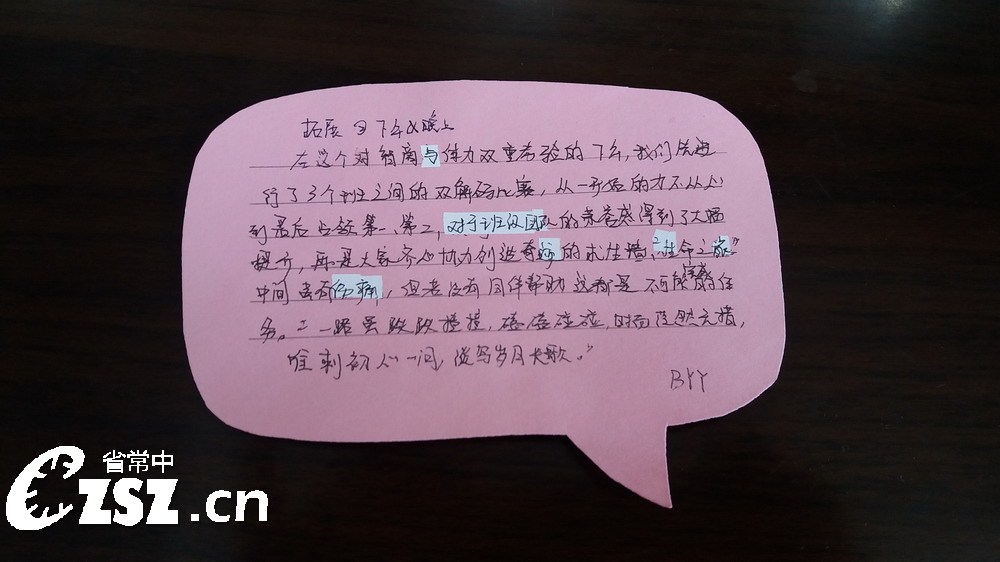 拓展日下午&晚上
在这个对智商与体力双重考验的下午,我们先进
行了3个班之间的双解码比赛,从一开始的力不从心
到最后占领第一、第二,对于班级团队的荣誉感得到了大幅
提升,再是大家齐心协力创造奇迹的求生墙,"生命之旅"
中间虽有伤痛,但若没有同伴帮助这都是不可能完成的任
务。"一路哭跌跌撞撞,磕磕碰碰,时而茫然无措,
唯剩初心一问,谈写岁月长歌。"
BYY
省常中
CZSZ.cn